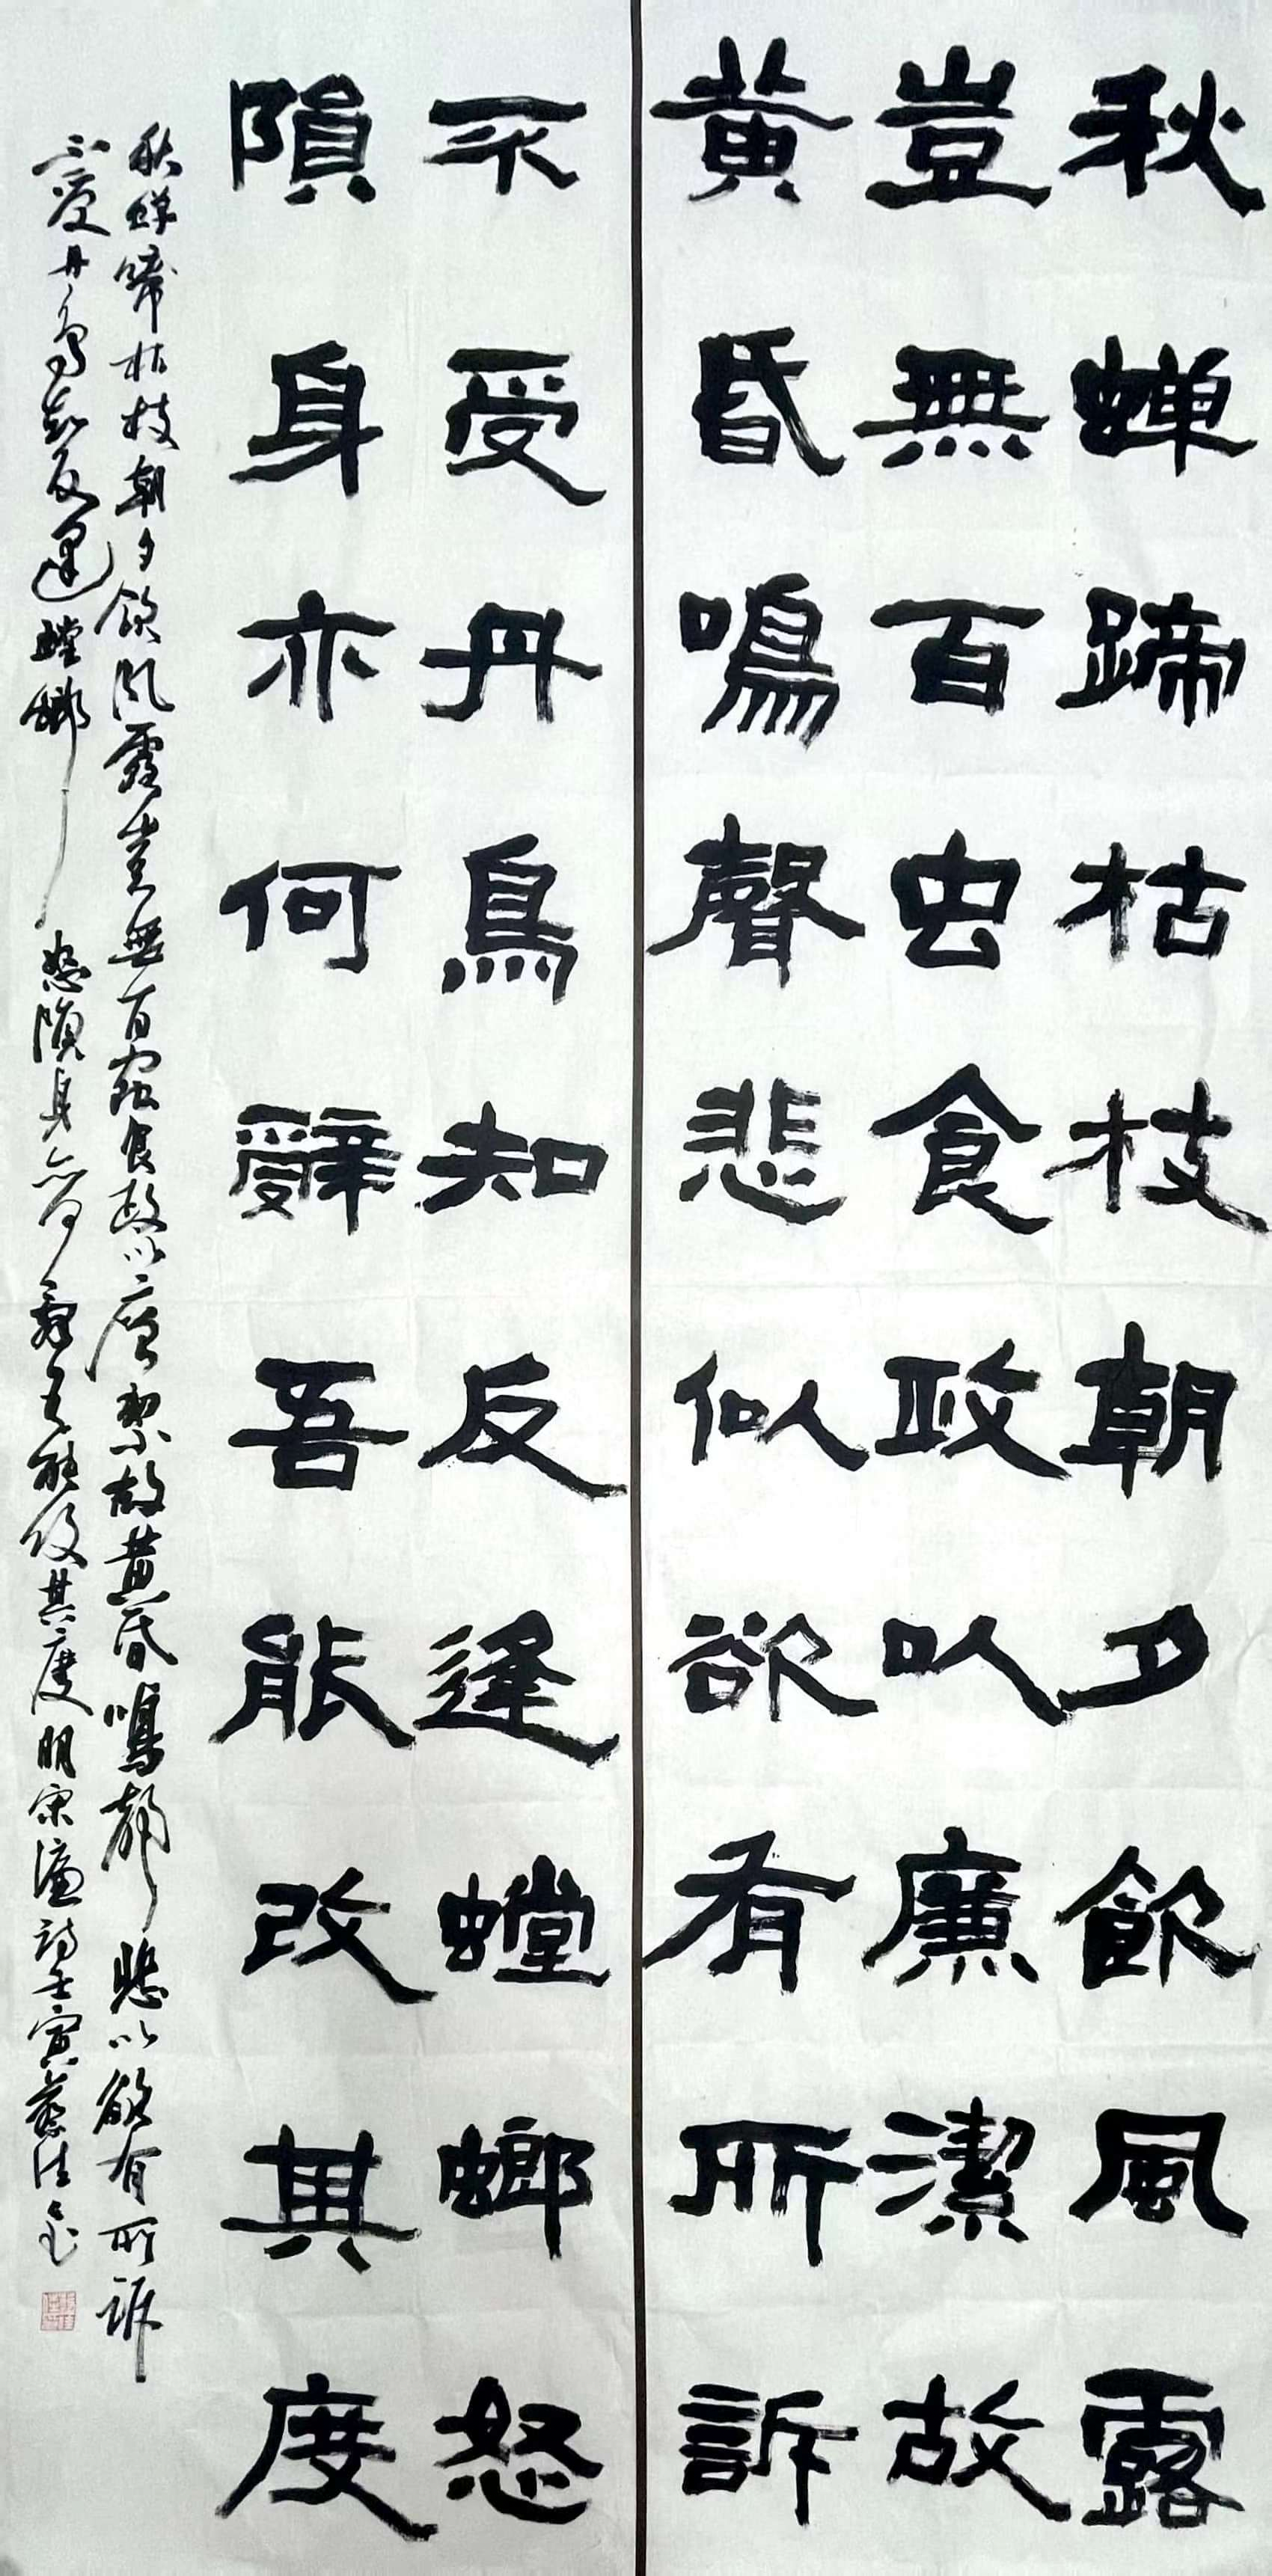 秋蝉蹄枯枝朝夕飲風露
豈無百虫食政以廉潔故
黄昏鳴聲悲似欲有所訴
不受丹鳥知反逢螳螂怒
隕身亦何辤吾能改其度
秋蝉啼枯枝朝夕飲風露豈無百蟲食政以廉潔故黄昏鳴聲悲似欲有所訴
不受丹鳥知反逢螳螂怒隕身亦何辭吾能改其度明宋濂詩壬寅蔡佳